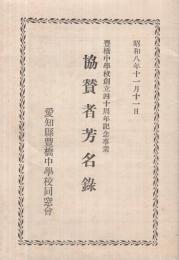 昭和八年十一月十一日
豐橋中學校創立四十周年記念事業
協賛者芳名錄
愛知縣豐橋中學校同窓會